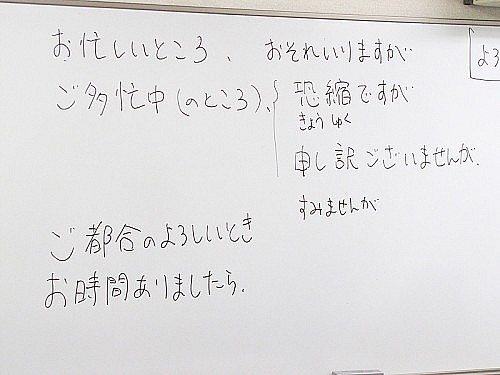 お忙しいところ、
ご多忙中(のところ)、
おそれいりますが
恐縮ですが
きょうしゅく
申し訳ございませんが、
すみませんが
ご都合のよろしいとき
お時間ありましたら、
よろ